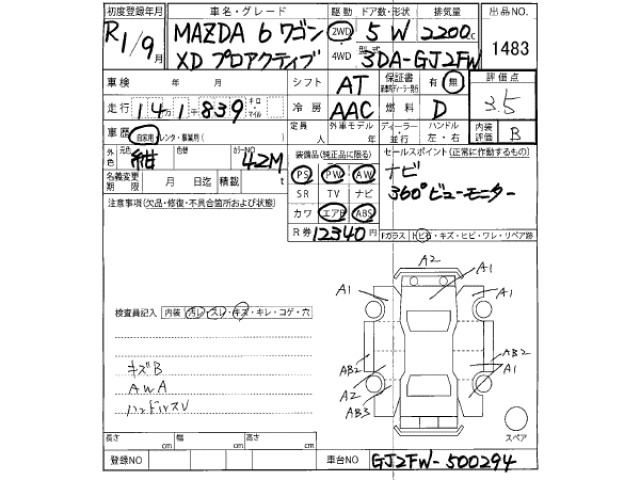 初度登録年月 車名・グレード 駆動 ドア数・形状 排気量 出品NO.
R1/9月 MAZDA 6 ワゴン 2WD 5 W 2200cc 1483
XD プロアクティブ 4WD 型式 3DA-GJ2FW
車検 年 月 シフト AT 保証書 有・無 評価点
走行 14万1千839 キロ・マイル 冷房 AAC 燃料 D 3.5
車歴 自家用・レンタ・事業用( ) 定員 人 外車モデル 年 ディーラー・並行 ハンドル 左・右 内装評価 B
外色 元色 紺 色替 カラーNO 42M 装備品(純正品に限る) セールスポイント(正常に作動するもの)
名義変更期限 月 日迄 積載 t PS PW AW ナビ
注意事項(欠品・修復・不具合箇所および状態) SR TV ナビ 360°ビューモニター
カワ エアB ABS
R券 12340円 Fガラス ト石・キズ・ヒビ・ワレ・リペア跡
A2
A1 A1 A1
検査員記入 内装 汚レ・スレ・キズ・キレ・コゲ・穴
AB2 AB2
キズB A2 A1
AWA AB3
ハンドルスレ
スペア
長さ cm 幅 cm 高さ cm
登録NO 車台NO GJ2FW-500294